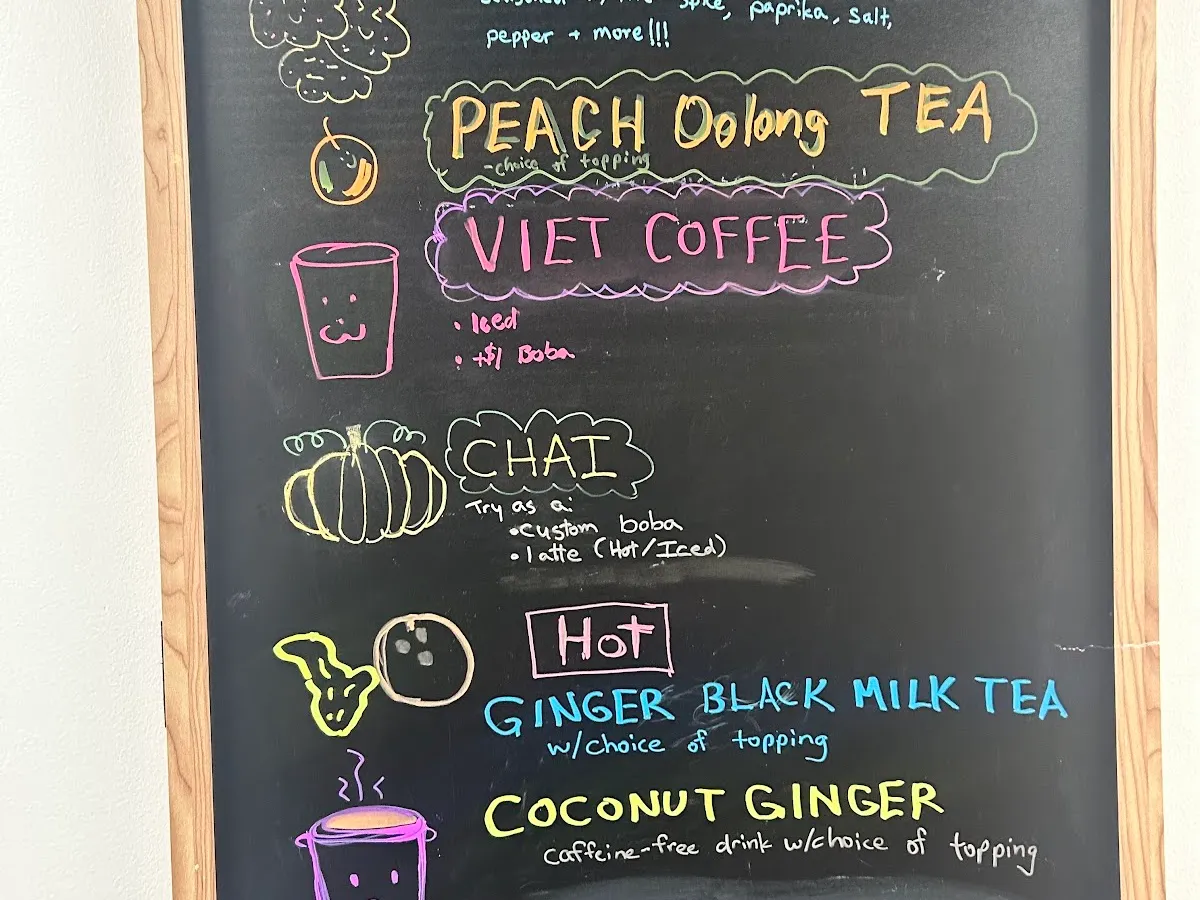 spice, paprika, salt,
pepper + more!!!
PEACH Oolong TEA
-choice of topping
VIET COFFEE
• Iced
• +$1 Boba
CHAI
Try as a:
• custom boba
• latte (Hot/Iced)
Hot
GINGER BLACK MILK TEA
w/choice of topping
COCONUT GINGER
caffeine-free drink w/choice of topping